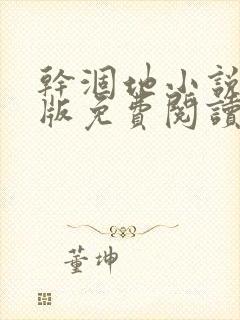 幹涸地小說
版免費閱讀
董坤